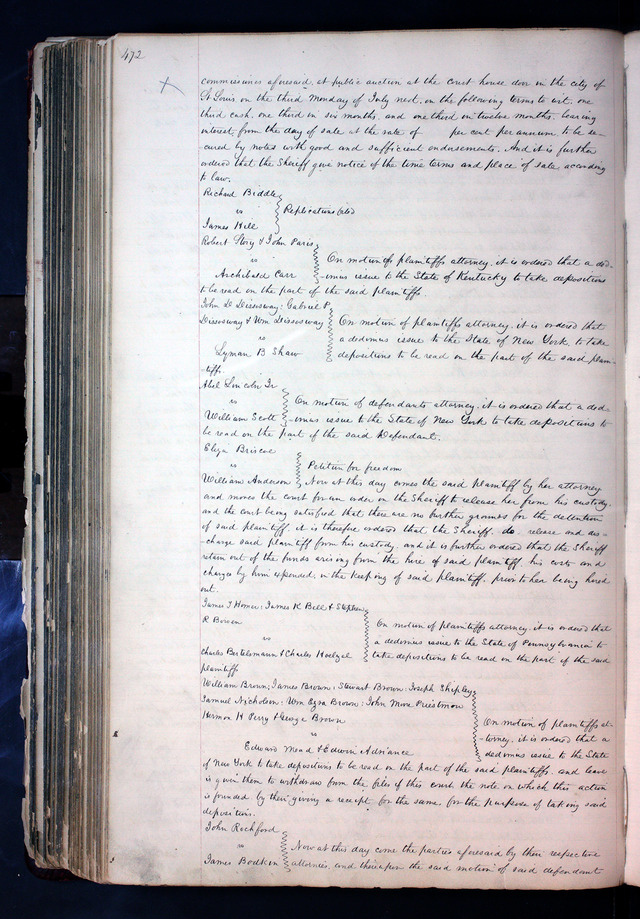 472
commissioner aforesaid, at public auction at the Court house door in the city of
St Louis on the third Monday of July next, on the following terms to wit, one
third cash, one third in six months, and one third in twelve months, bearing
interest from the day of sale at the rate of per cent per annum to be se-
cured by notes with good and sufficient endorsements. And it is further
ordered that the Sheriff give notice of the time terms and place of sale according
to law.
Richard Biddle
vs
James Hill
Replications filed
Robert Story & John Paris
vs
Archibald Carr
On motion of plaintiffs attorney, it is ordered that a ded-
imus issue to the State of Kentucky to take depositions
to be read on the part of the said plaintiffs.
John D Disosway: Gabriel P.
Disosway & Wm Disosway
vs
Lyman B Shaw
On motion of plaintiffs attorney, it is ordered that
a dedimus issue to the State of New York to take
depositions to be read on the part of the said plain-
tiffs
Abel Lincoln Jr
vs
William Scott
On motion of defendants attorney, it is ordered that a ded-
imus issue to the State of New York to take depositions to
be read on the part of the said Defendant.
Eliza Briscoe
vs
William Anderson
Petition for freedom
Now at this day comes the said Plaintiff by her attorney
and moves the court for an order on the Sheriff to release her from his custody,
and the court being satisfied that there are no further grounds for the detention
of said plaintiff, it is therefore ordered that the Sheriff, do release and dis-
charge said plaintiff from his custody, and it is further ordered that the Sheriff
retain out of the funds arising from the hire of said plaintiff his costs and
charges by him expended, in the keeping of said plaintiff, prior to her being hired
out.
James T Homer: James K Bell & Stephen
R Bowen
vs
Charles Bertelsmann & Charles Hoelzel
On motion of plaintiffs attorney, it is ordered that
a dedimus issue to the State of Pennsylvania to
take depositions to be read on the part of the said
plaintiffs
William Brown: James Brown: Stewart Brown: Joseph Shipley
Samuel Nicholson: Wm Ezra Brown: John Priestman
Hermon H Perry & George Brown
vs
Edward Mead & Edwin Adriance
On motion of plaintiffs at-
torney, it is ordered that a
dedimus issue to the State
of New York to take depositions to be read on the part of the said plaintiffs, and leave
is given them to withdraw from the files of this court the note on which this action
is founded by their giving a receipt for the same, for the purpose of taking said
depositions.
John Rochford
vs
James Bodkin
Now at this day come the parties aforesaid by their respective
attornies, and thereupon the said motion of said defendant